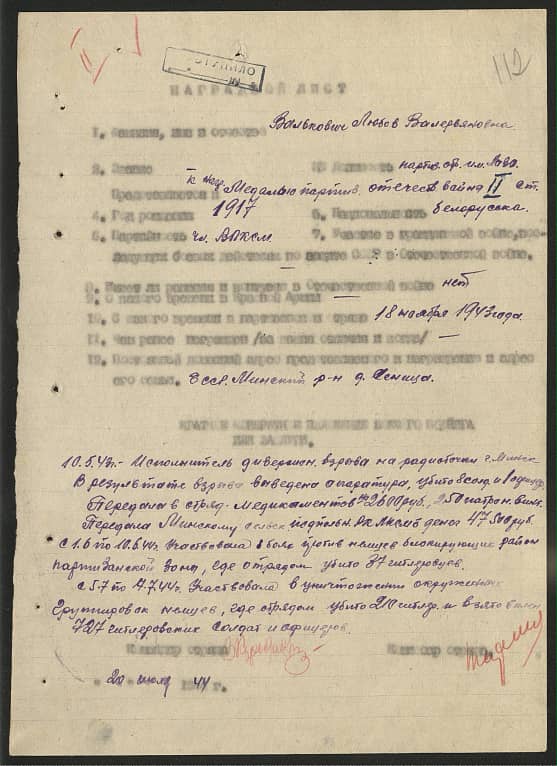 112
НАГРАДНОЙ ЛИСТ
Валькович Любовь Валерьяновна
1. Фамилия, имя и отчество
2. Звание
партиз. отр. им.
Медалью партиз. отечеств войны II ст.
1917
белорусска.
4. Год рождения 5. Национальность
6. Партийность чл. ВЛКСМ 7. Участие в гражданской войне, последующих боевых действиях по защите СССР и Отечественной войне.
8. Имеет ли ранения и контузии в Отечественной войне нет
9. С какого времени в Красной Армии —
10. С какого времени в партизанах 18 ноября 1943 года.
11. Чем ранее награжден /за какие отличия и когда/ —
12. Постоянный домашний адрес представляемого к награждению и адрес
его семьи. БССР. Минский р-н д. Сеница.
10.5.43г.- Исполнитель диверсион. взрыва на радиоточки г. Минск
В результате взрыва выведена аппаратура, убито 8 солд. и 1 офицер
Передала в отряд- медикаментов на 2600 руб., 250 патрон. винт.
Передала Минскому сельск подпольн. РК ЛКСМБ денег 47500 руб.
С 1.6 по 10.6.44г. Участвовала в боях против немцев блокирующих район
партизанской зоны, где отрядом убито 37 гитлеровцев.
С 5.7 по 9.7.44г. Участвовала в уничтожении окруженных
группировок немцев, где отрядом убито 210 гитлер. и взято в плен
727 гитлеровских солдат и офицеров.
Командир отряда Комиссар отряда
20 июля 44 г.